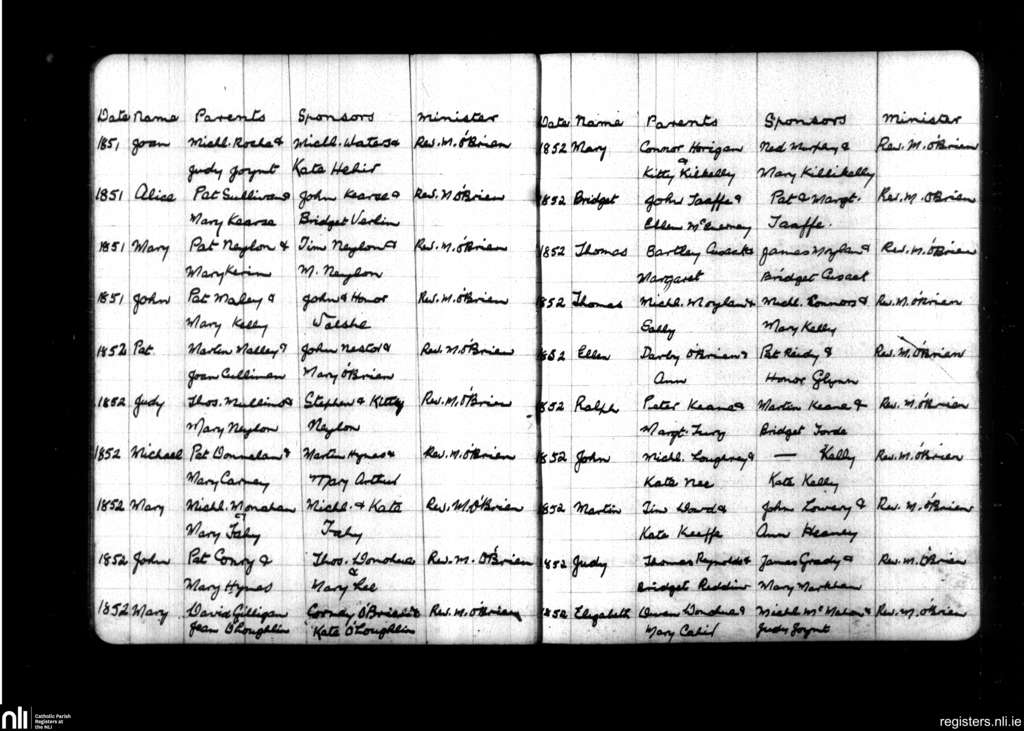 Date Name Parents Sponsors Minister
1851 Joan Michl. Roche & Michl. Waters & Rev. M. O'Brien
Judy Joynt Kate Hehir
1851 Alice Pat Sullivan & John Kearse & Rev. M O'Brien
Mary Kearse Bridget
1851 Mary Pat Neylon & Tim Neylon & Rev. M. O'Brien
Mary Kerin M. Neylon
1851 John Pat Maley & John & Honor Rev. M. O'Brien
Mary Kelly Walshe
1852 Pat Martin Malley & John Nestor & Rev. M. O'Brien
Joan Cullinan Mary O'Brien
1852 Judy Thos. Mullins & Stephen & Kitty Rev. M. O'Brien
Mary Neylon Neylon
1852 Michael Pat Donnelan & Martin Hynes & Rev. M. O'Brien
Mary Carney Mary Arthur
1852 Mary Michl. Monahan Michl. & Kate Rev. M. O'Brien
&
Mary Fahy Fahy
1852 John Pat Conry & Thos. Donohue Rev. M. O'Brien
&
Mary Hynes Mary Lee
1852 Mary David Gilligan Corney O'Brien & Rev. M. O'Brien
Jean O'Loughlin Kate O'Loughlin
Date Name Parents Sponsors Minister
1852 Mary Connor Horigan Ned Murphy & Rev. M. O'Brien
&
Kitty Kilkelly Mary Killikelly
1852 Bridget John Taaffe & Pat & Margt. Rev. M. O'Brien
Ellen McInerney Taaffe.
1852 Thomas Bartley Cusack & James Moylan & Rev. M. O'Brien
Margaret Bridget Cusack
1852 Thomas Michl. Moylan & Michl. Connors & Rev. M. O'Brien
Sally Mary Kelly
1852 Ellen Darby O'Brien & Pat Reidy & Rev. M. O'Brien
Ann Honor Glynn
1852 Ralph Peter Keane & Martin Keane & Rev. M. O'Brien
Margt. Bridget Forde
1852 John Michl. Loughrey & — Kelly Rev. M. O'Brien
Kate Nee Kate Kelly
1852 Martin Tim Ward & John Lowery & Rev. M. O'Brien
Kate Keeffe Ann Heaney
1852 Judy Thomas Reynolds & James Grady & Rev. M. O'Brien
Bridget Reddin Mary Markham
1852 Elizabeth Owen Donohue & Michl. McMahon & Rev. M. O'Brien
Mary Cahir Judy Joynt
nli
Catholic Parish
Registers at
the NLI
registers.nli.ie